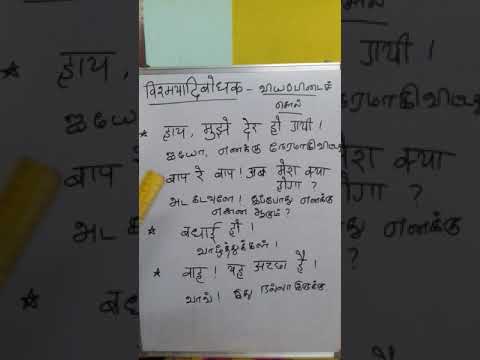 विस्मयादिबोधक - வியப்பிடைச்
சொல்
* हाय, मुझे देर हो गयी ।
ஐயோ, எனக்கு நேரமாகிவிட்டது
बाप रे बाप! अब मेरा क्या
होगा ?
அட கடவுளே! இப்போது எனக்கு
என்ன ஆகும்?
* बधाई हो ।
வாழ்த்துக்கள்!
* वाह! यह अच्छा है ।
வாவ்! இது நல்லாஇருக்கு